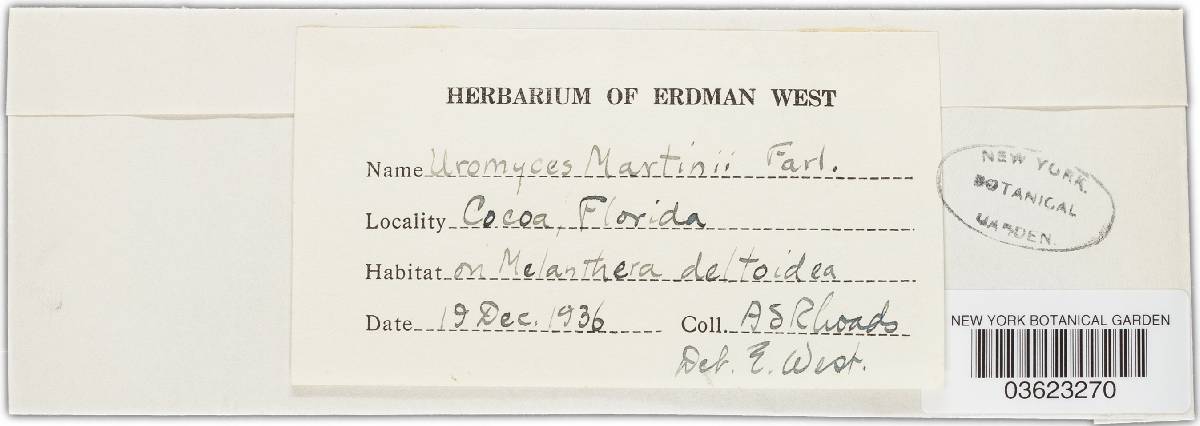 HERBARIUM OF ERDMAN WEST
Name Uromyces Martinii Farl.
Locality Cocoa, Florida
Habitat on Melanthera deltoidea
Date 19 Dec. 1936 Coll. A S Rhoads
Det. E. West.
NEW YORK
BOTANICAL
GARDEN.
NEW YORK BOTANICAL GARDEN
03623270